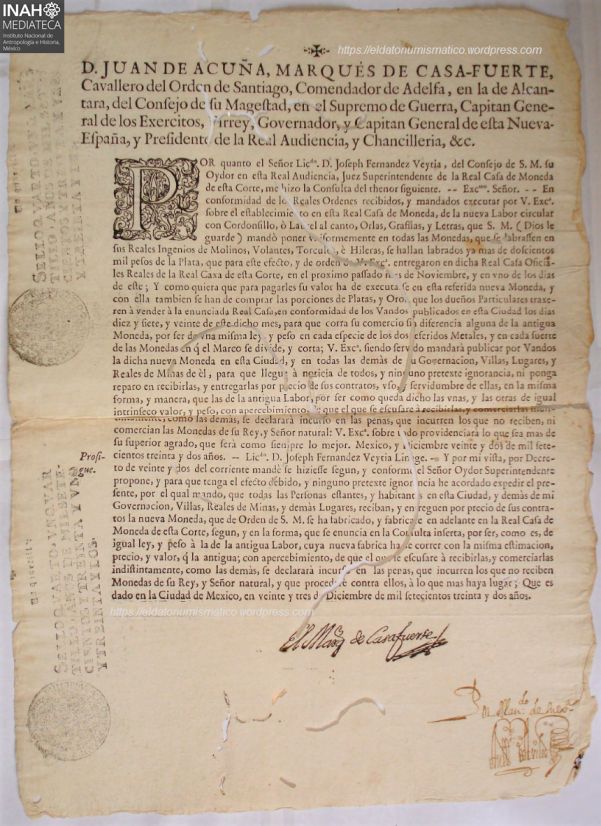 INAH
MEDIATECA
Instituto Nacional de
Antropología e Historia,
México
https://eldatonumismatico.wordpress.com
D. JUAN DE ACUÑA, MARQUÉS DE CASA-FUERTE,
Cavallero del Orden de Santiago, Comendador de Adelfa, en la de Alcan-
tara, del Consejo de su Magestad, en el Supremo de Guerra, Capitan Gene-
ral de los Exercitos, Virrey, Governador, y Capitan General de esta Nueva-
España, y Presidente de la Real Audiencia, y Chancilleria, &c.
POR quanto el Señor Licdo. D. Joseph Fernandez Veytia, del Consejo de S. M. su
Oydor en esta Real Audiencia, Juez Superintendente de la Real Casa de Moneda
de esta Corte, me hizo la Consulta del thenor siguiente. -- Excmo. Señor. -- En
conformidad de los Reales Ordenes recibidos, y mandados executar por V. Exca.
sobre el establecimiento en esta Real Casa de Moneda, de la nueva Labor circular
con Cordonsillo, ò Laurel al canto, Orlas, Grafilas, y Letras, que S. M. (Dios le
guarde) mandò poner vniformemente en todas las Monedas, que se labrassen en
sus Reales Ingenios de Molinos, Volantes, Torcules, è Hileras, se hallan labrados ya mas de doscientos
mil pesos de la Plata, que para este efecto, y de orden de V. Exca. entregaron en dicha Real Casa Oficia-
les Reales de la Real Caxa de esta Corte, en el proximo passado mes de Noviembre, y en vno de los dias
de este; Y como quiera que para pagarles su valor ha de executarse en esta referida nueva Moneda, y
con ella tambien se han de comprar las porciones de Platas, y Oro, que los dueños Particulares traxe-
ren à vender à la enunciada Real Casa, en conformidad de los Vandos publicados en esta Ciudad los dias
diez y siete, y veinte de este dicho mes, para que corra su comercio sin diferencia alguna de la antigua
Moneda, por ser de vna misma ley, y peso en cada especie de los dos referidos Metales, y en cada suerte
de las Monedas en q el Marco se divide, y corta; V. Exca. siendo servido mandará publicar por Vandos
la dicha nueva Moneda en esta Ciudad, y en todas las demàs de su Governacion, Villas, Lugares, y
Reales de Minas de èl, para que llegue à noticia de todos, y ninguno pretexte ignorancia, ni ponga
reparo en recibirlas, y entregarlas por precio de sus contratos, vso, y servidumbre de ellas, en la misma
forma, y manera, que las de la antigua Labor, por ser como queda dicho las vnas, y las otras de igual
intrinseco valor, y peso, con apercebimiento, de que el que se escusare à recibirlas, y comerciarlas
como las demàs, se declarará incurso en las penas, que incurren los que no reciben, ni
comercian las Monedas de su Rey, y Señor natural: V. Exca. sobre todo providenciará lo que sea mas de
su superior agrado, que será como siempre lo mejor. Mexico, y Diciembre veinte y dos de mil sete-
cientos treinta y dos años. -- Licdo. D. Joseph Fernandez Veytia Linage. -- Y por mi vista, por Decre-
Prosi-
gue.
to de veinte y dos del corriente mandé se hiziesse segun, y conforme el Señor Oydor Superintendente
propone, y para que tenga el efecto debido, y ninguno pretexte ignorancia he acordado expedir el pre-
sente, por el qual mando, que todas las Personas estantes, y habitantes en esta Ciudad, y demàs de mi
Governacion, Villas, Reales de Minas, y demàs Lugares, reciban, y en reguen por precio de sus contra-
tos la nueva Moneda, que de Orden de S. M. se ha fabricado, y fabricare en adelante en la Real Casa de
Moneda de esta Corte, segun, y en la forma, que se enuncia en la Consulta inserta, por ser, como es, de
igual ley, y peso à la de la antigua Labor, cuya nueva fabrica ha de correr con la misma estimacion,
precio, y valor, q la antigua; con apercebimiento, de que el que se escusare à recibirlas, y comerciarlas
indistintamente, como las demàs, se declarará incurso en las penas, que incurren los que no reciben
Monedas de su Rey, y Señor natural, y que procederé contra ellos, à lo que mas haya lugar; Que es
dado en la Ciudad de Mexico, en veinte y tres de Diciembre de mil setecientos treinta y dos años.
https://eldatonumismatico.wordpress.com
El Marqs de Casafuerte